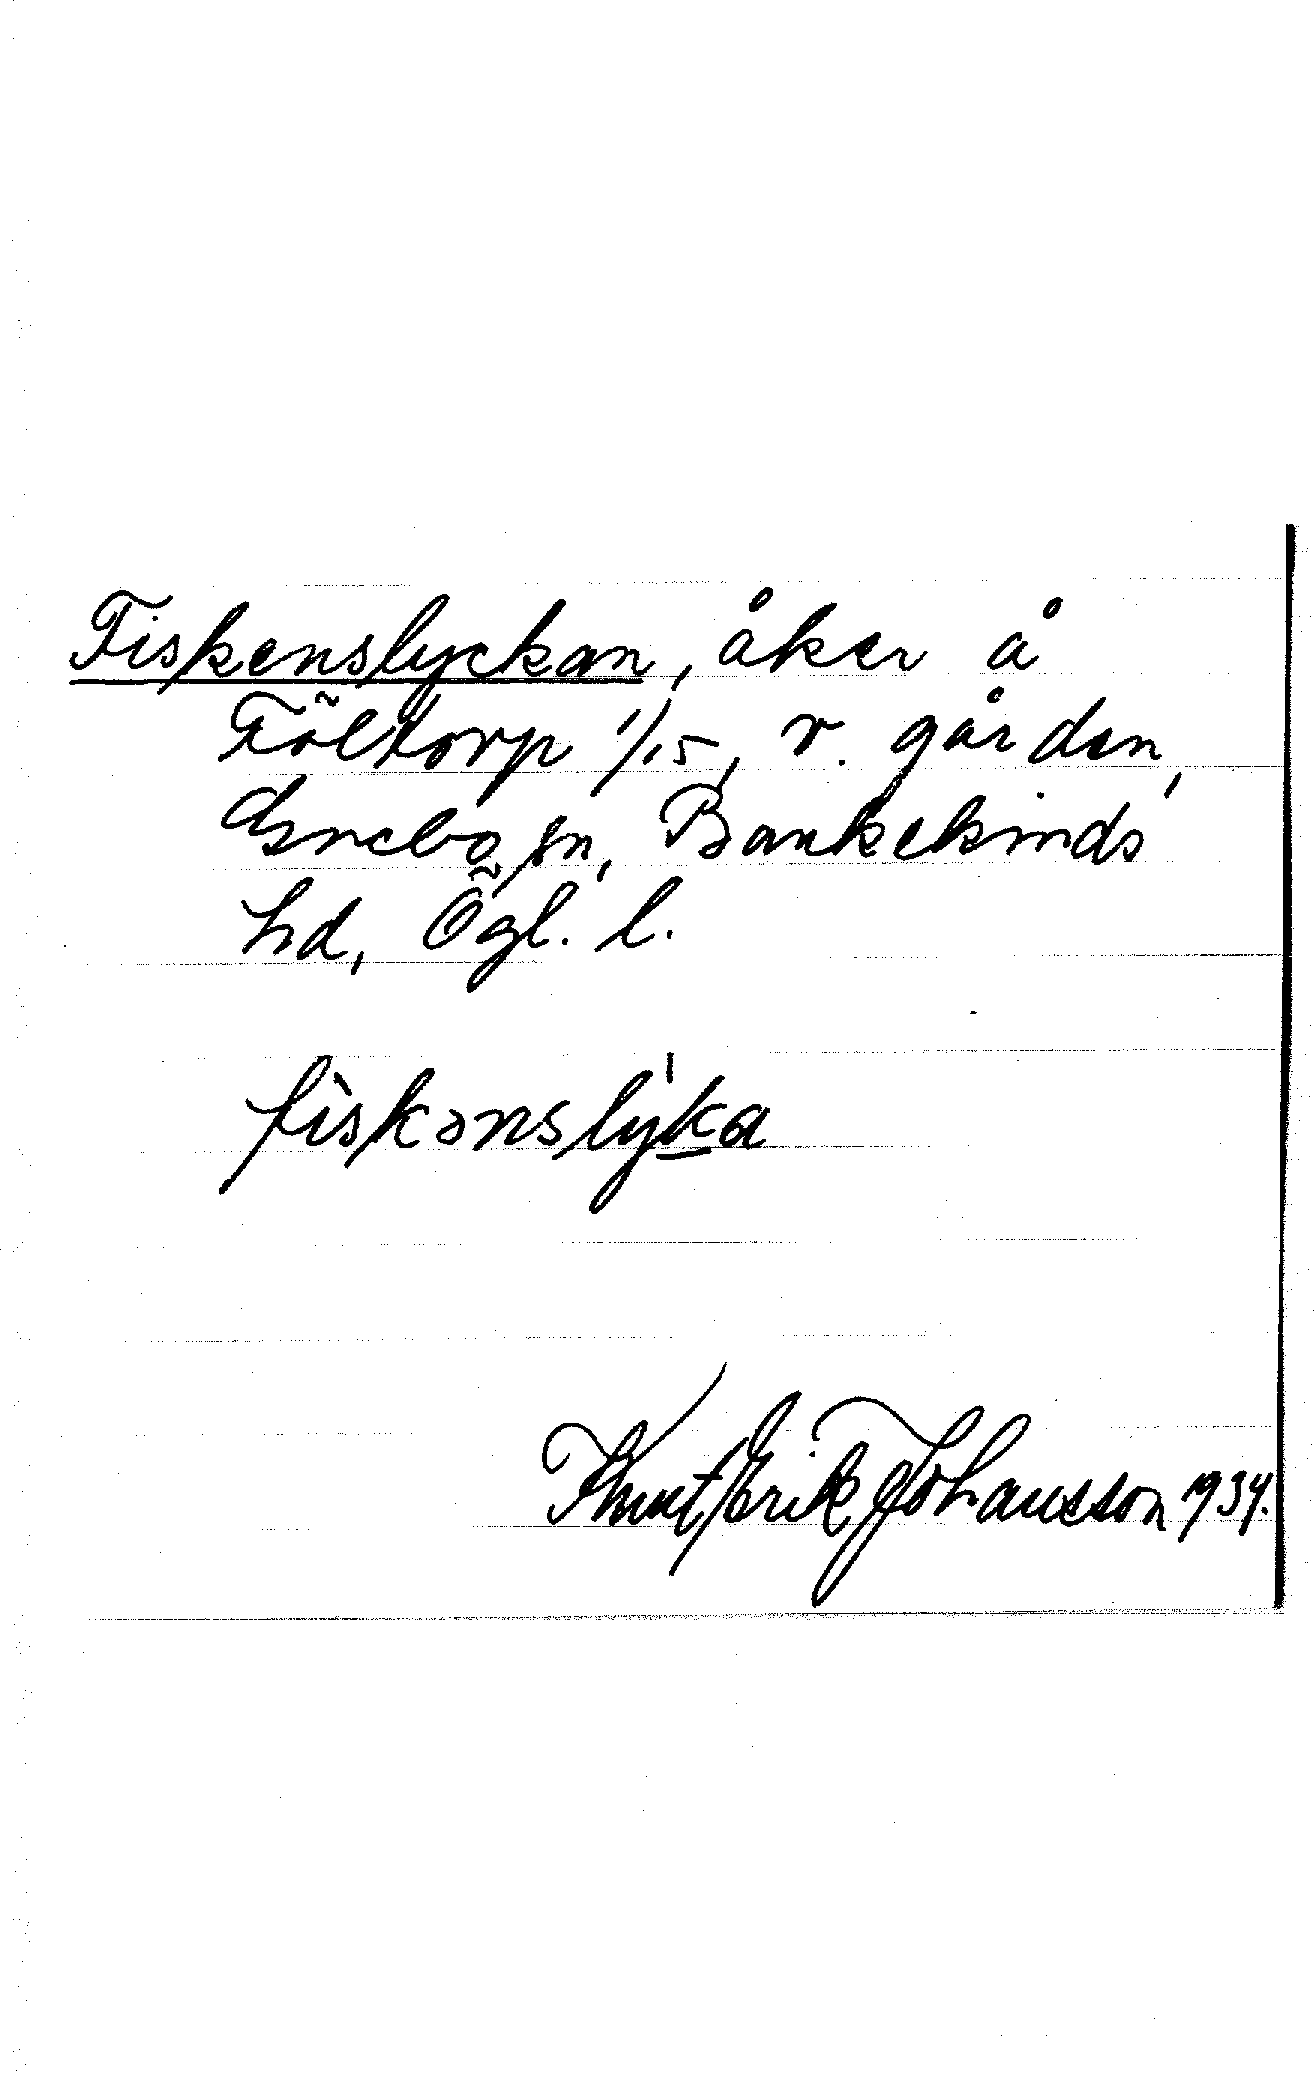 Fiskenslyckan, åker å
Föltorp 1/15, v. gården,
Grebo sn, Bankekinds
hd, Ögl. l.
fìskənslyk̲a
Knut Erik Johansson 1934.